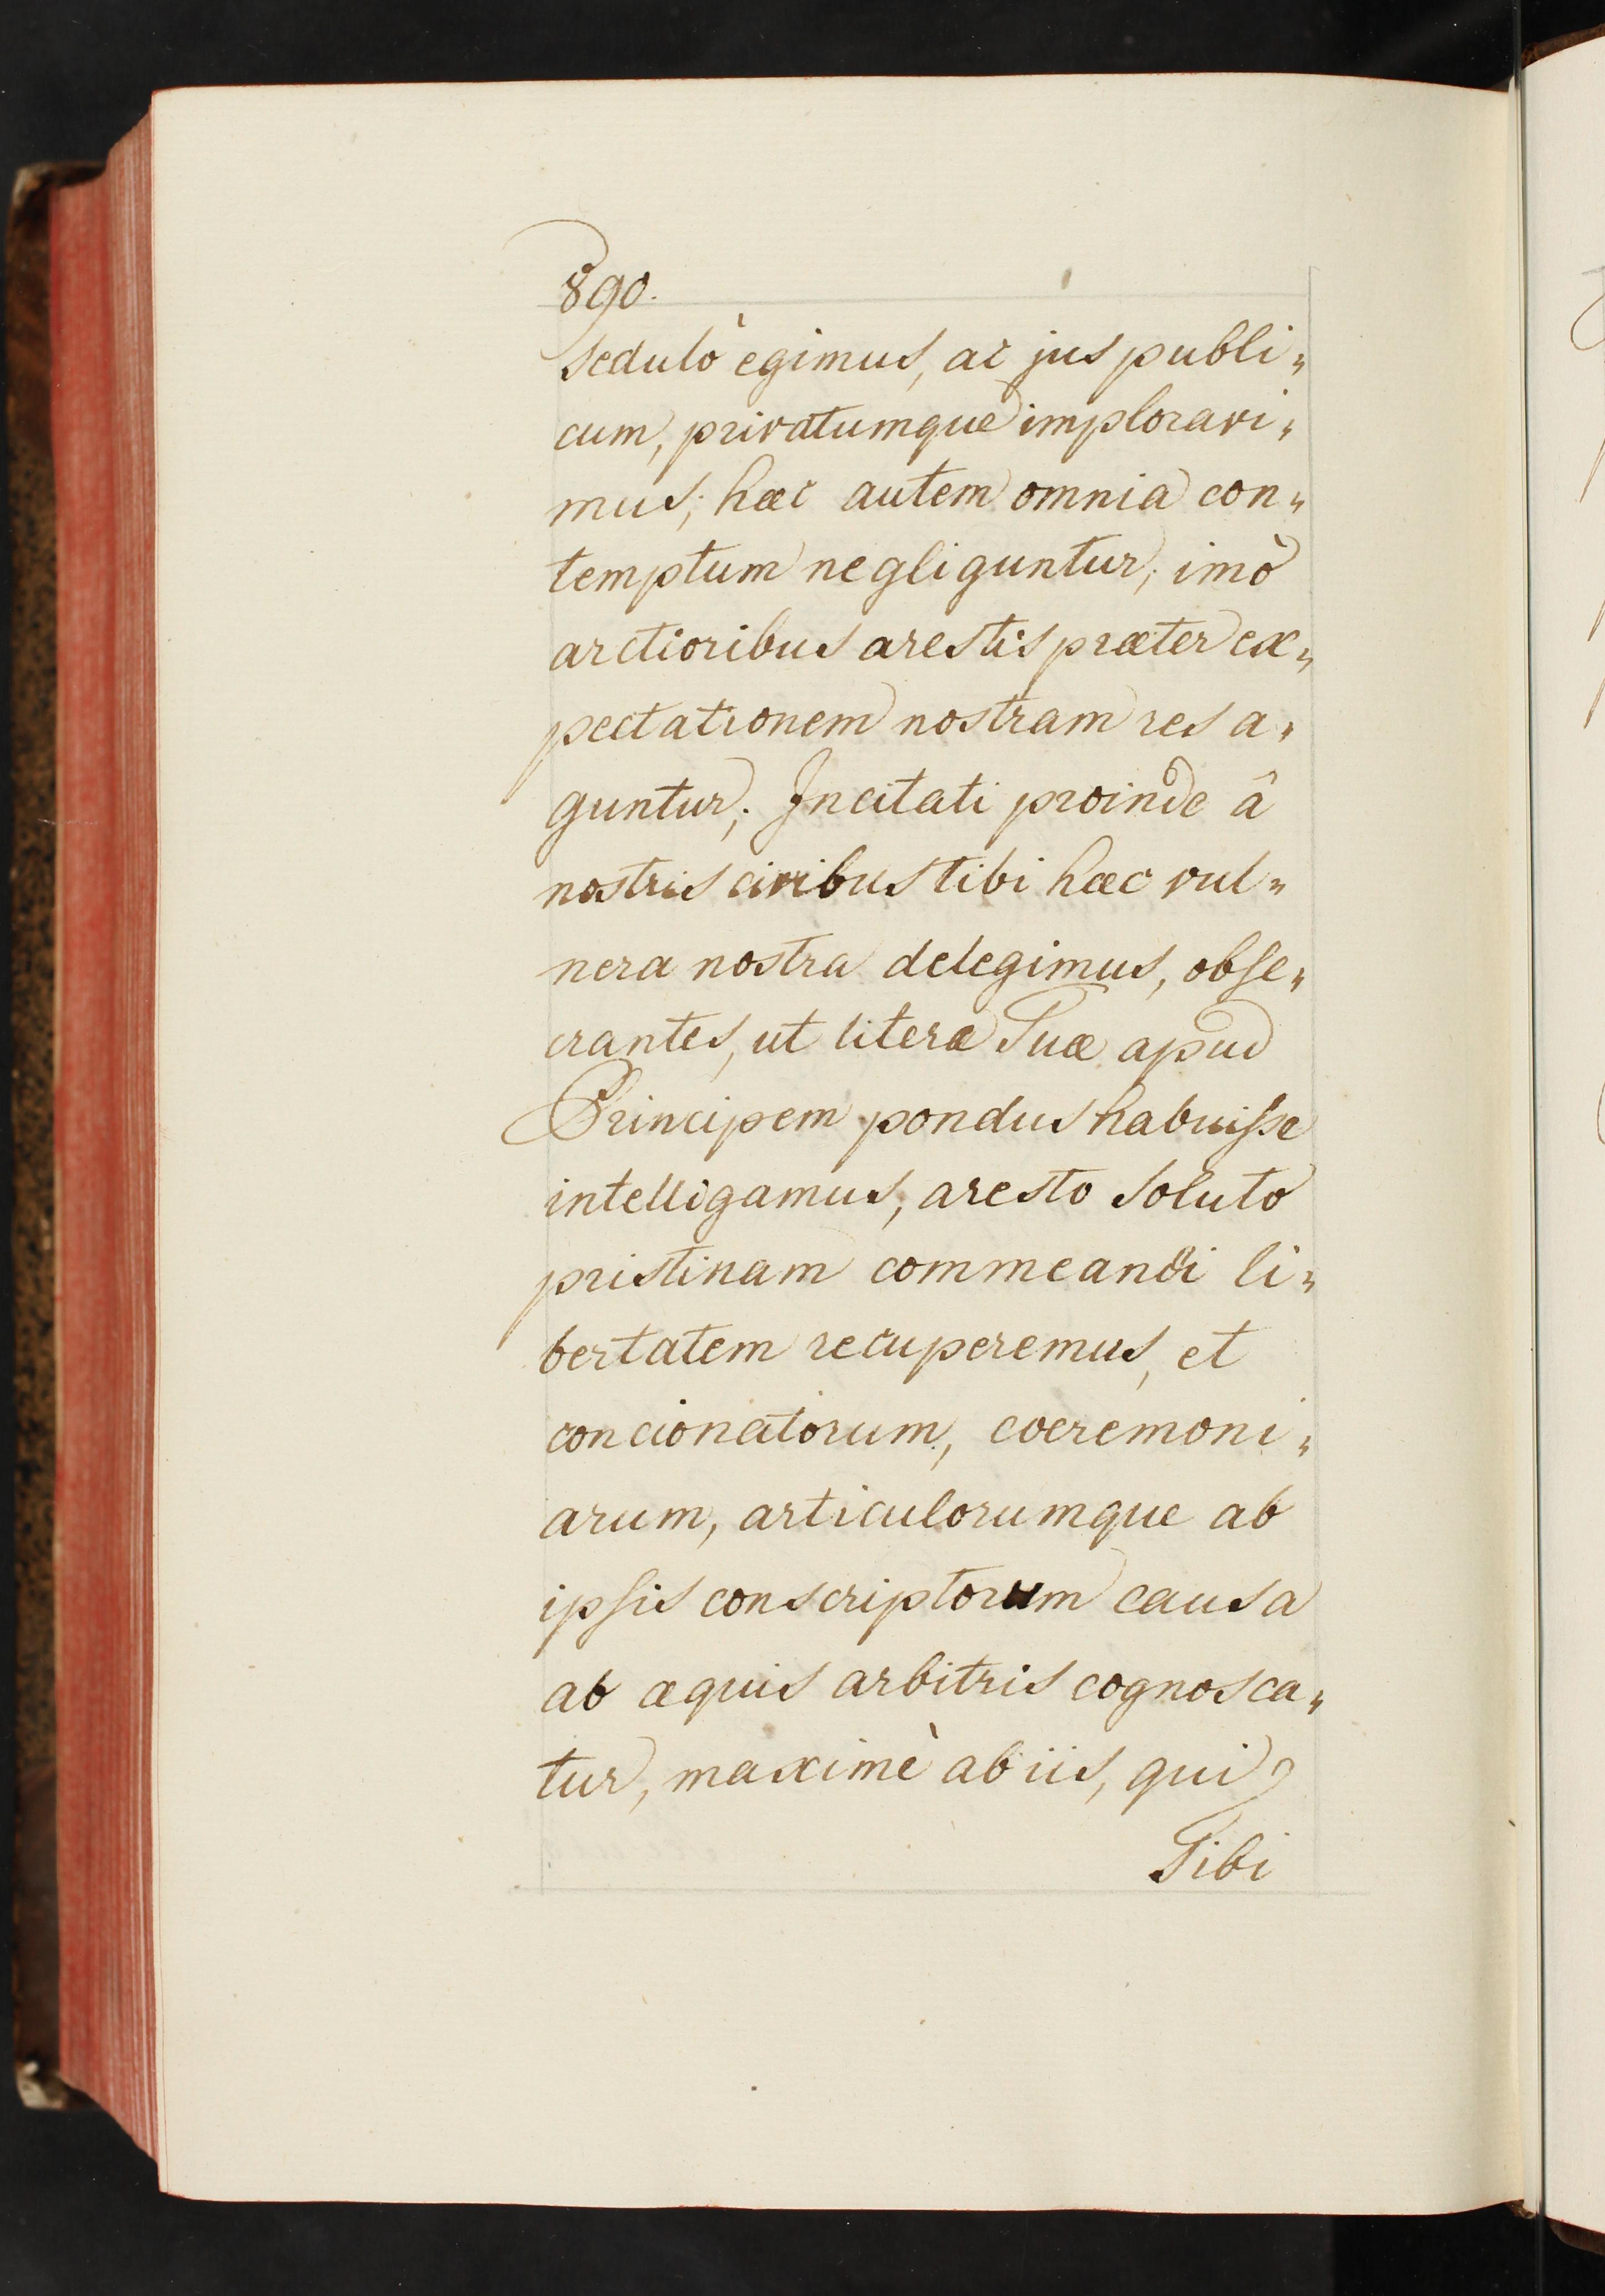 890.
sedulò egimus, ac jus publi„
cum, privatumque imploravi„
mus; hæc autem omnia con„
temptum negliguntur; imò
arctioribus arestis præter ex„
pectationem nostram res a„
guntur; Incitati proinde â
nostris civibus tibi hæc vul„
nera nostra delegimus, obse„
crantes, ut literæ Tuæ apud
Principem pondus habuisse
intelligamus, aresto soluto
pristinam commeandi li„
bertatem recuperemus, et
concionatorum, cœremoni„
arum, articulorumque ab
ipsis conscriptorum causa
ab æquis arbitris cognosca„
tur, maximè ab iis, qui
Tibi